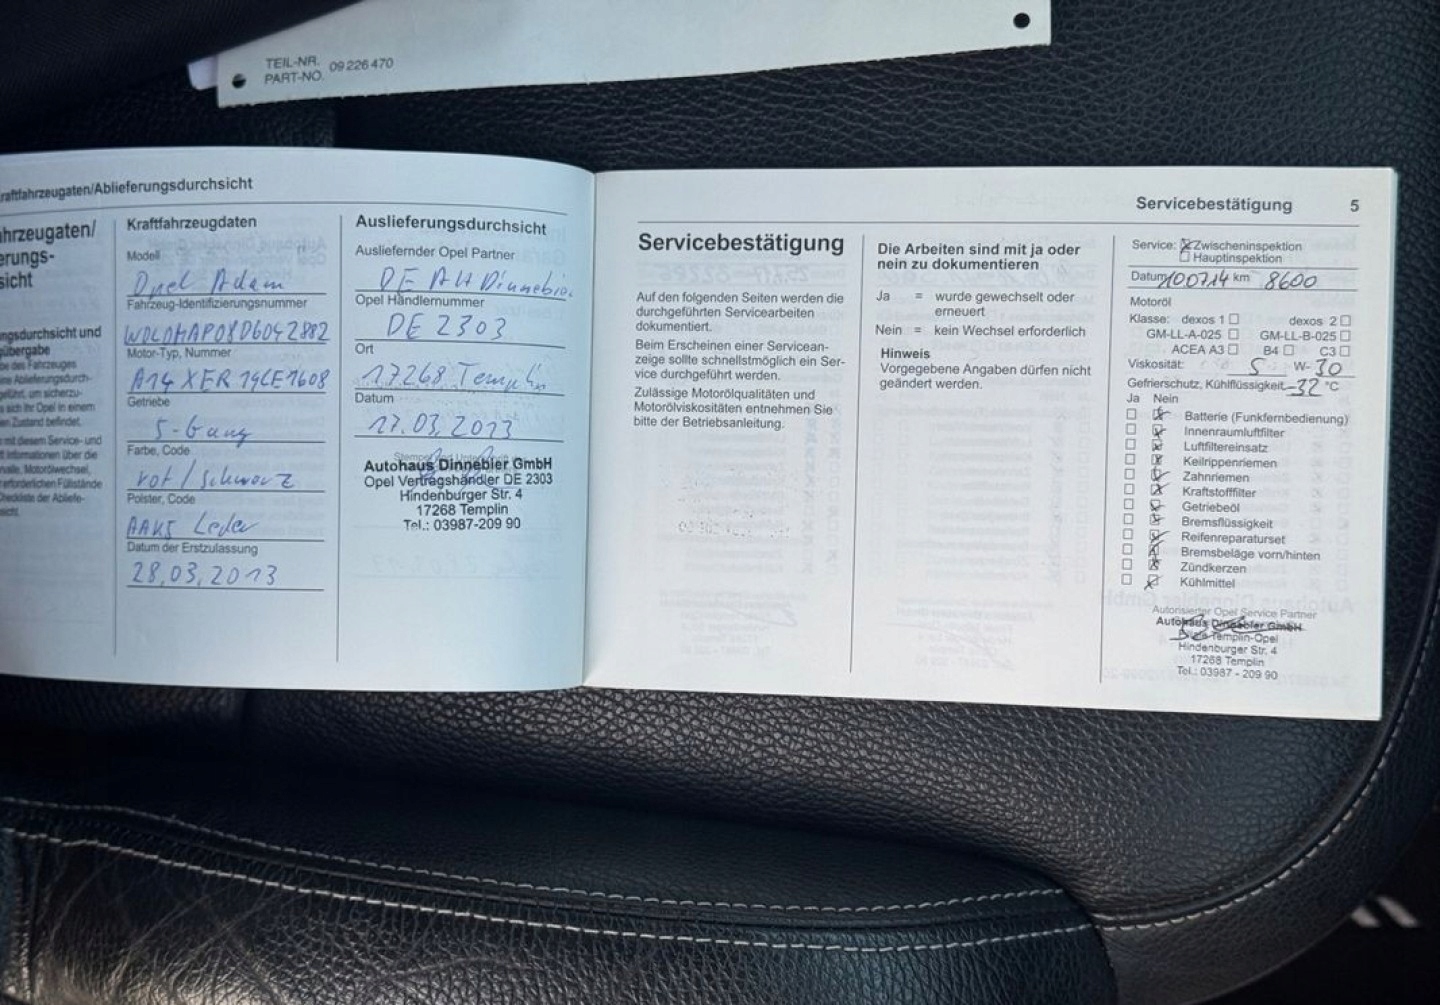 TEIL-NR. 09 226 470
PART-NO.
raftfahrzeugaten/Ablieferungsdurchsicht
hrzeugaten/
erungs-
sicht
ngsdurchsicht und
übergabe
Kraftfahrzeugdaten
Modell
Opel Adam
Fahrzeug-Identifizierungsnummer
W0L0MAP08D6042882
Motor-Typ, Nummer
A14 XER 19CE1608
Getriebe
5-Gang
Farbe, Code
rot / schwarz
Polster, Code
AAKS Leder
Datum der Erstzulassung
28.03.2013
Auslieferungsdurchsicht
Ausliefernder Opel Partner
DE AH Dinnebier
Opel Händlernummer
DE 2303
Ort
17268 Templin
Datum
17.03.2013
Autohaus Dinnebier GmbH
Opel Vertragshändler DE 2303
Hindenburger Str. 4
17268 Templin
Tel.: 03987-209 90
Servicebestätigung 5
Servicebestätigung
Auf den folgenden Seiten werden die
durchgeführten Servicearbeiten
dokumentiert.
Beim Erscheinen einer Servicean-
zeige sollte schnellstmöglich ein Ser-
vice durchgeführt werden.
Zulässige Motorölqualitäten und
Motorölviskositäten entnehmen Sie
bitte der Betriebsanleitung.
Die Arbeiten sind mit ja oder
nein zu dokumentieren
Ja = wurde gewechselt oder
erneuert
Nein = kein Wechsel erforderlich
Hinweis
Vorgegebene Angaben dürfen nicht
geändert werden.
Service: Zwischeninspektion
Hauptinspektion
Datum 10.07.14 km 8600
Motoröl
Klasse: dexos 1 dexos 2
GM-LL-A-025 GM-LL-B-025
ACEA A3 B4 C3
Viskosität: 5 W- 30
Gefrierschutz, Kühlflüssigkeit -32 °C
Ja Nein
Batterie (Funkfernbedienung)
Innenraumluftfilter
Luftfiltereinsatz
Keilrippenriemen
Zahnriemen
Kraftstofffilter
Getriebeöl
Bremsflüssigkeit
Reifenreparaturset
Bremsbeläge vorn/hinten
Zündkerzen
Kühlmittel
Autorisierter Opel Service Partner
Autohaus Dinnebier GmbH
Filiale Templin-Opel
Hindenburger Str. 4
17268 Templin
Tel.: 03987 - 209 90